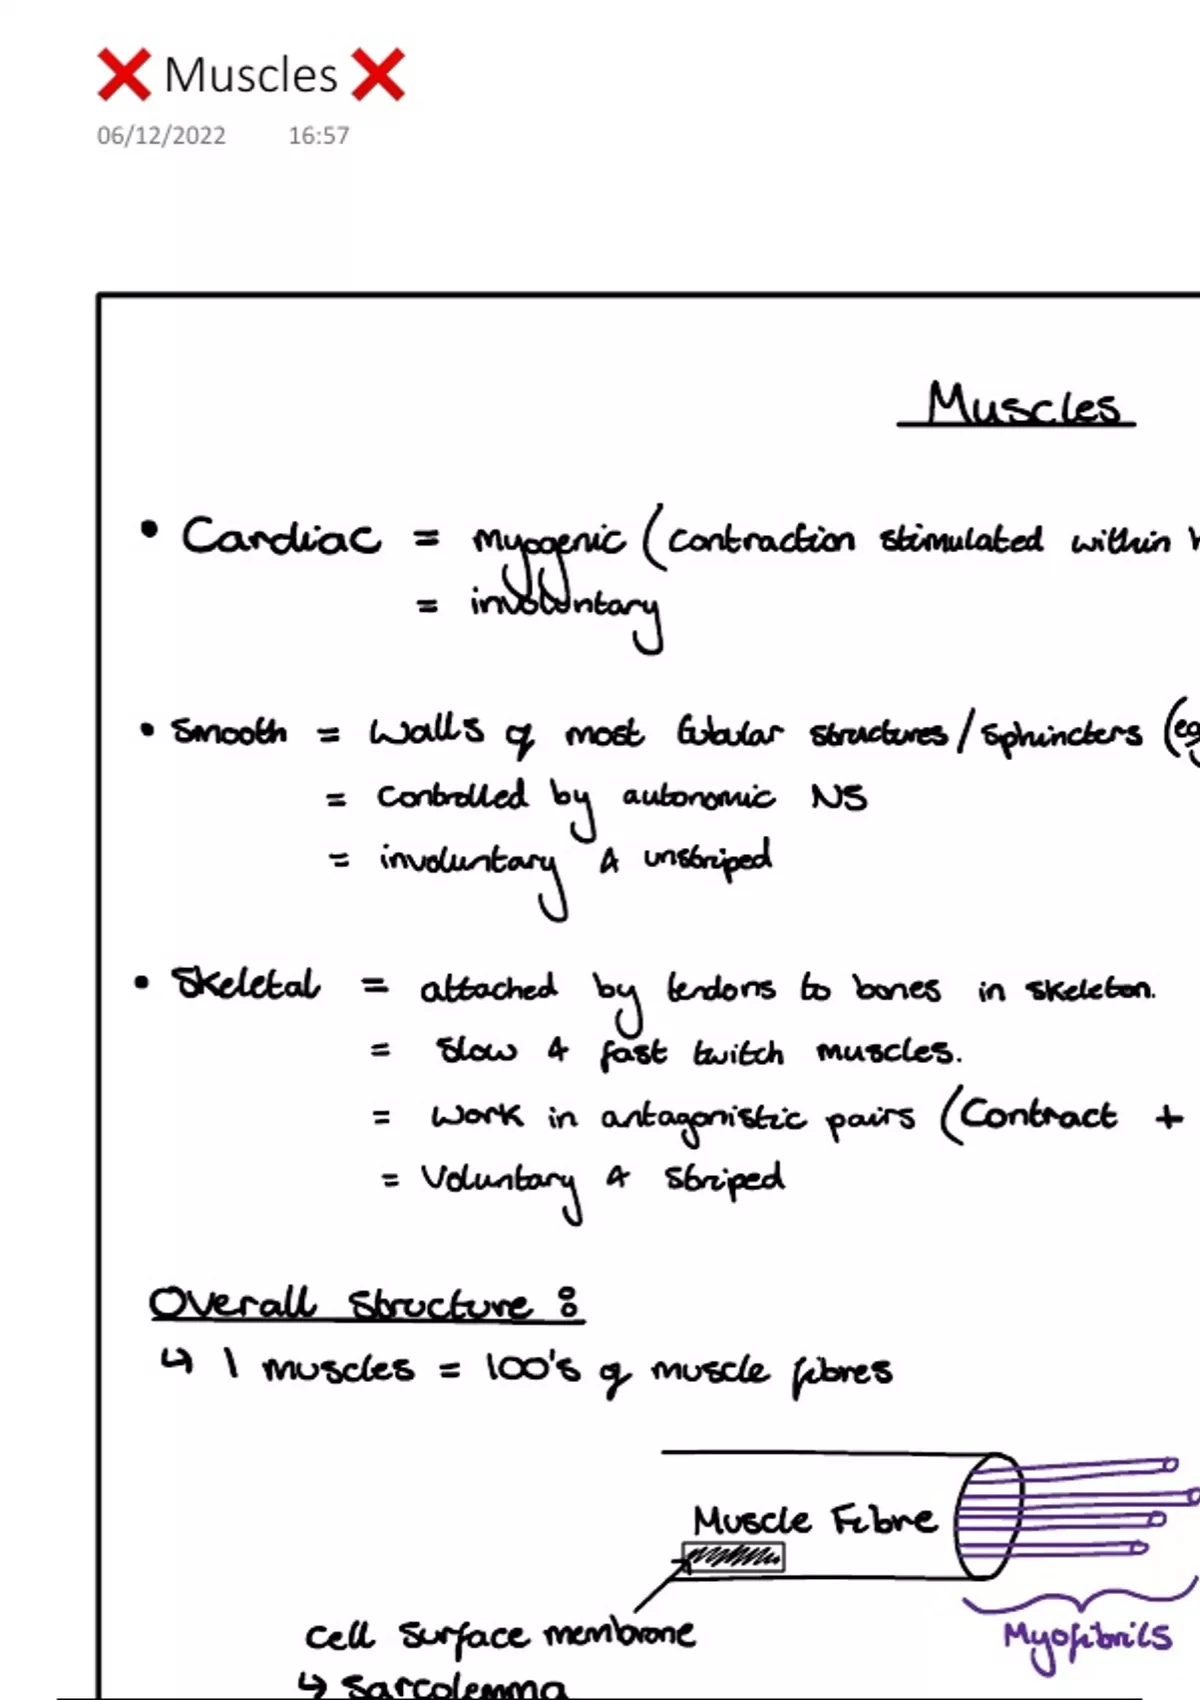 ❌ Muscles ❌
06/12/2022 16:57
Muscles
• Cardiac = myogenic (contraction stimulated within
= involuntary
• Smooth = walls of most tubular structures/sphincters (eg
= controlled by autonomic NS
= involuntary & unstriped
• Skeletal = attached by tendons to bones in skeleton.
= slow & fast twitch muscles.
= work in antagonistic pairs (Contract +
= Voluntary & striped
Overall Structure :
↳ 1 muscles = 100's of muscle fibres
Muscle Fibre
cell surface membrane
↳ sarcolemma
Myofibrils